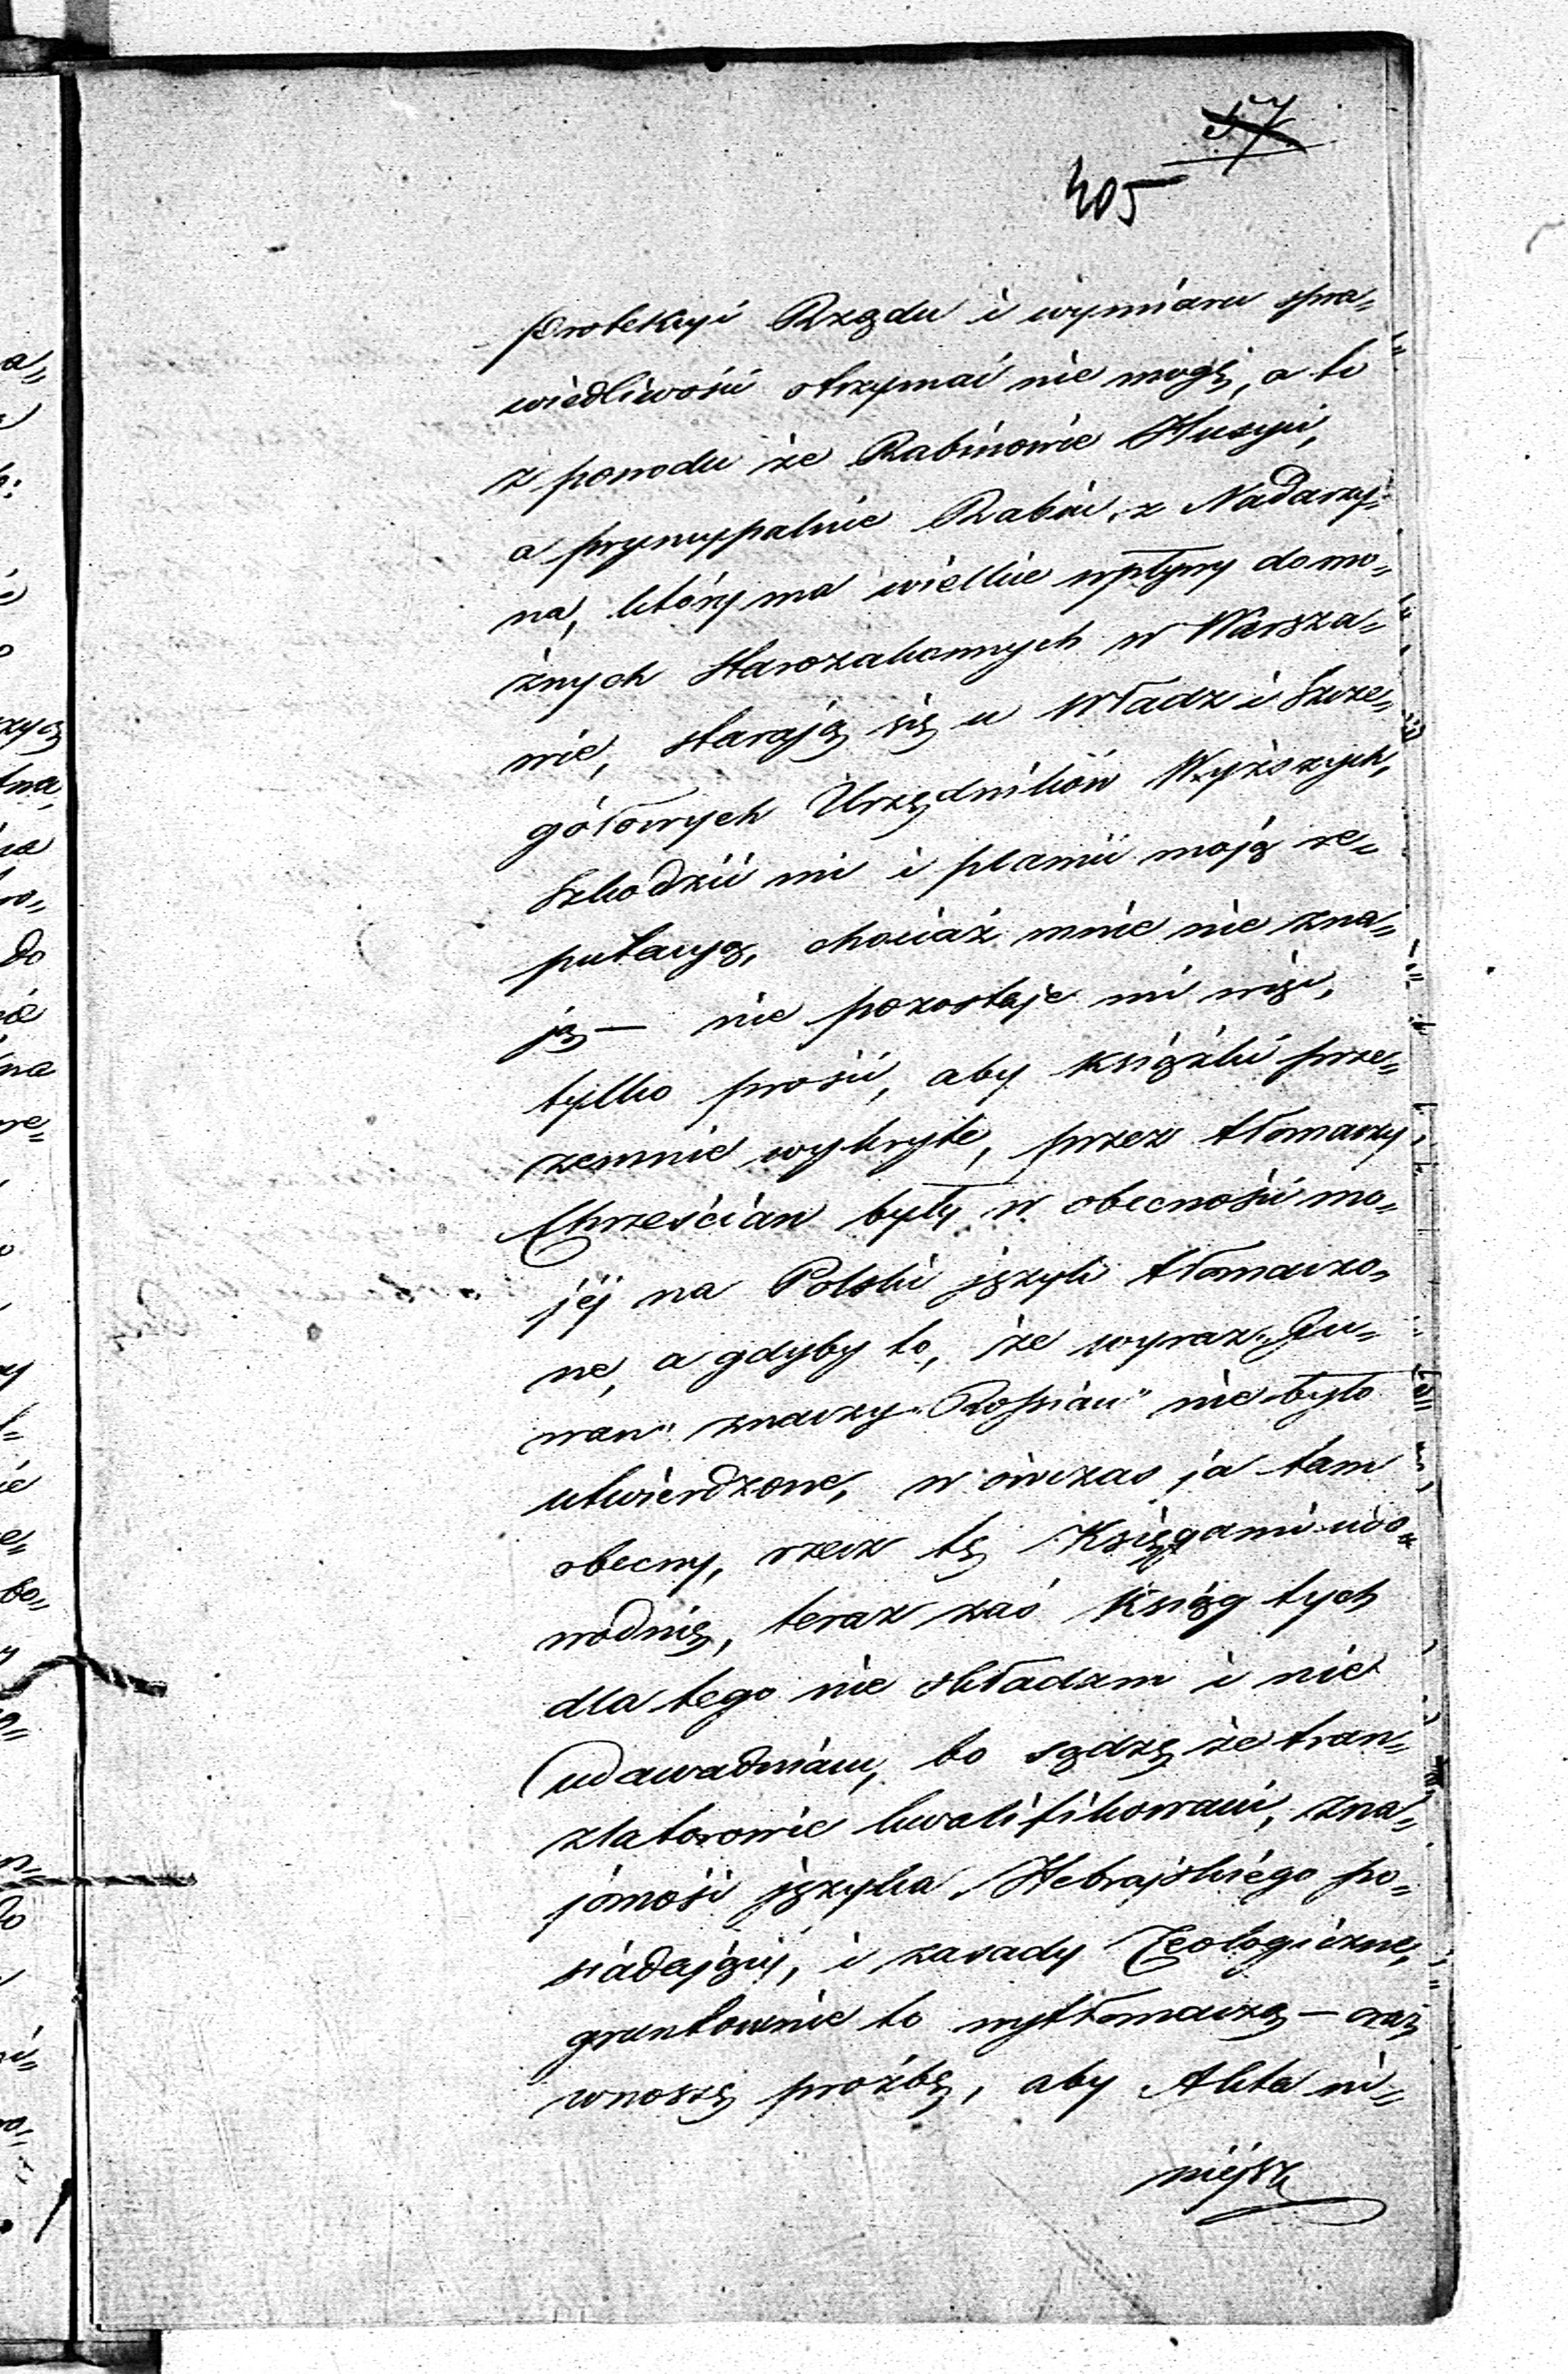 57
405
protekcyi Rządu i wymiaru spra„
wiedliwości otrzymać nie mogę, a to
z powodu że Rabinowie Husyci,
a pryncypalnie Rabin z Nadarzy„
na, który ma wielkie wpływy do mo„
żnych Starozakonnych w Warsza„
wie, starają się u Władz i Szcze„
gółowych Urzędników Wyższych,
Szkodzić mi i plamić moją re„
putacyą, chociaż mnie nie zna„
ją — nie pozostaje mi więc,
tylko prosić, aby książki prze„
zemnie wykryte, przez tłomaczy
Chrześcian były w obecności mo„
jéj na Polski język tłomaczo„
ne, a gdyby to, że wyraz „Ju„
wan" znaczy „Rossian" nie było
utwierdzone, w ówczas ja tam
obecny, rzecz tę Księgami udo„
wodnię, teraz zaś Ksiąg tych
dla tego nie składam i nie
udawadniam, bo sądzę że tran„
zlatorowie kwalifikowani, zna„
jomość języka Hebrajskiego po„
siadający, i zasady Teologiczne,
gruntownie to wytłomaczą — oraz
wnoszę proźbę, aby Akta ni„
niejsze